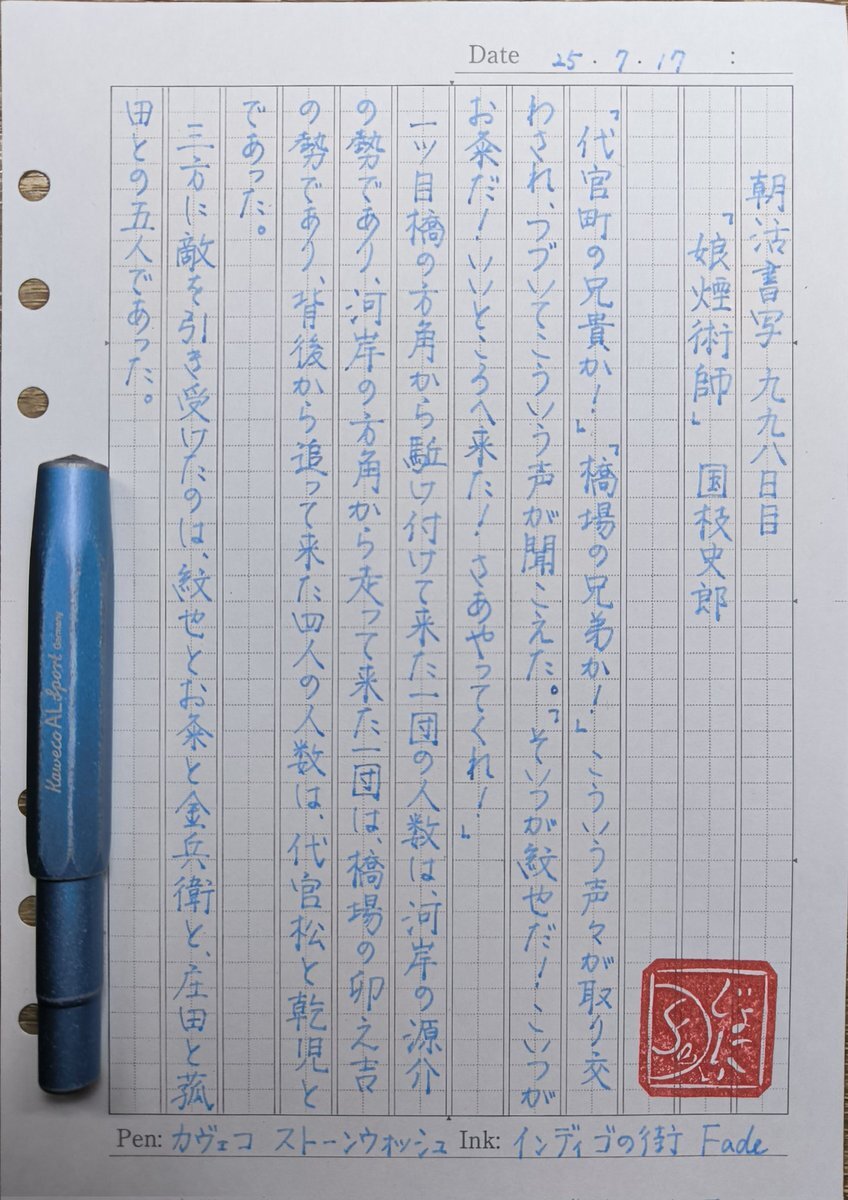 Date 25.7.17 :
朝活書写 九九八日目
「娘煙術師」 国枝史郎
「代官町の兄貴か!」「橋場の兄弟か!」こういう声々が取り交
わされ、つづいてこういう声が聞こえた。「そいつが紋也だ!こいつが
お粂だ!いいところへ来た!さあやってくれ!」
一ツ目橋の方角から駈け付けて来た一団の人数は、河岸の源介
の勢であり、河岸の方角から走って来た一団は、橋場の卯之吉
の勢であり、背後から追って来た四人の人数は、代官松と乾児と
であった。
三方に敵を引き受けたのは、紋也とお粂と金兵衛と、庄田と菰
田との五人であった。
Kaweco AL Sport Germany
Pen: カヴェコ ストーンウォッシュ Ink: インディゴの街 Fade